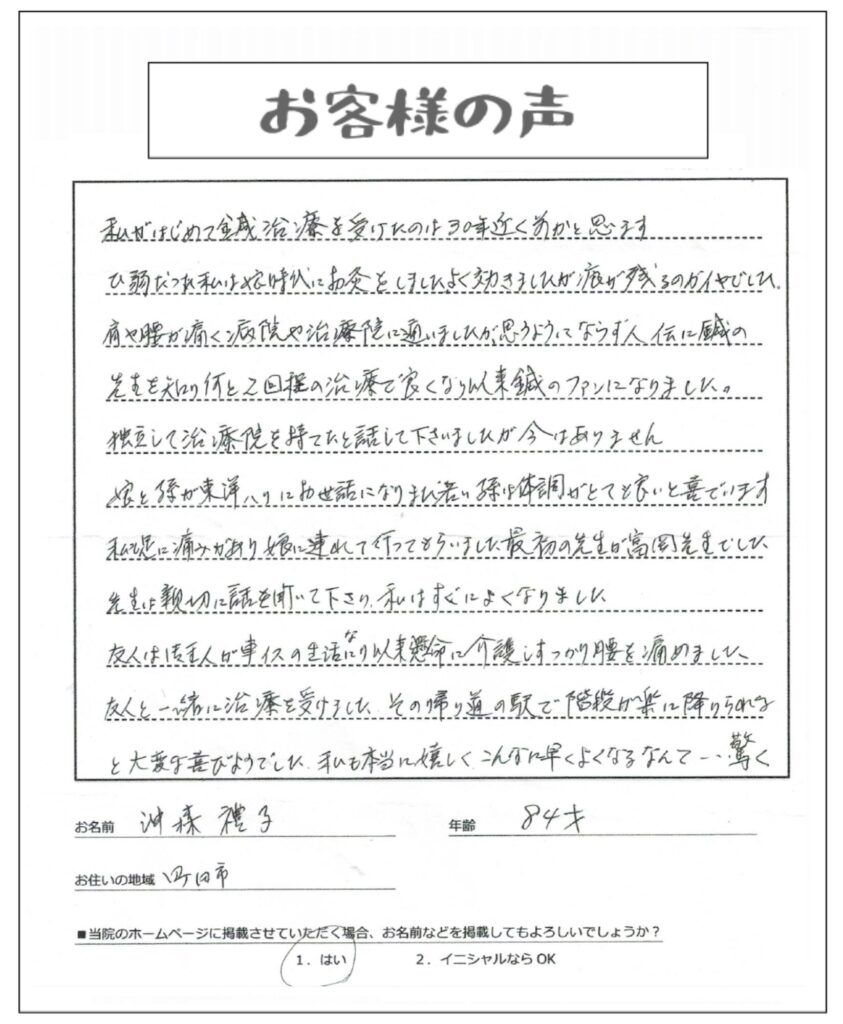 お客様の声
私がはじめて鍼治療を受けたのは30年近く前かと思ます
ひ弱だつた私は娘時代にお灸をしましたよく効きましたが痕が残るのがイヤでした、
肩や腰が痛く病院や治療院に通いましたが、思うようにならず人伝に鍼の
先生を知り何と2回程の治療で良くなり以来鍼のファンになりました。
独立して治療院を持てたと話して下さいましたが今はありません
娘と孫が東洋ハリにお世話になりまだ若い孫は体調がとても良いと喜でいます
私も足に痛みがあり娘に連れて行ってもらいました最初の先生が富岡先生でした、
先生は親切に話を聞いて下さり、私はすぐによくなりました
友人は御主人が車イスの生活になり以来懸命に介護しすっかり腰を痛めました、
友人と一緒に治療を受けました、その帰り道の駅で階段が楽に降りられる
と大変な喜びようでした、私も本当に嬉しく、こんなに早くよくなるなんて…驚く
お名前 沖森 禮子 年齢 84才
お住いの地域 町田市
■当院のホームページに掲載させていただく場合、お名前などを掲載してもよろしいでしょうか？
1．はい 2．イニシャルなら OK